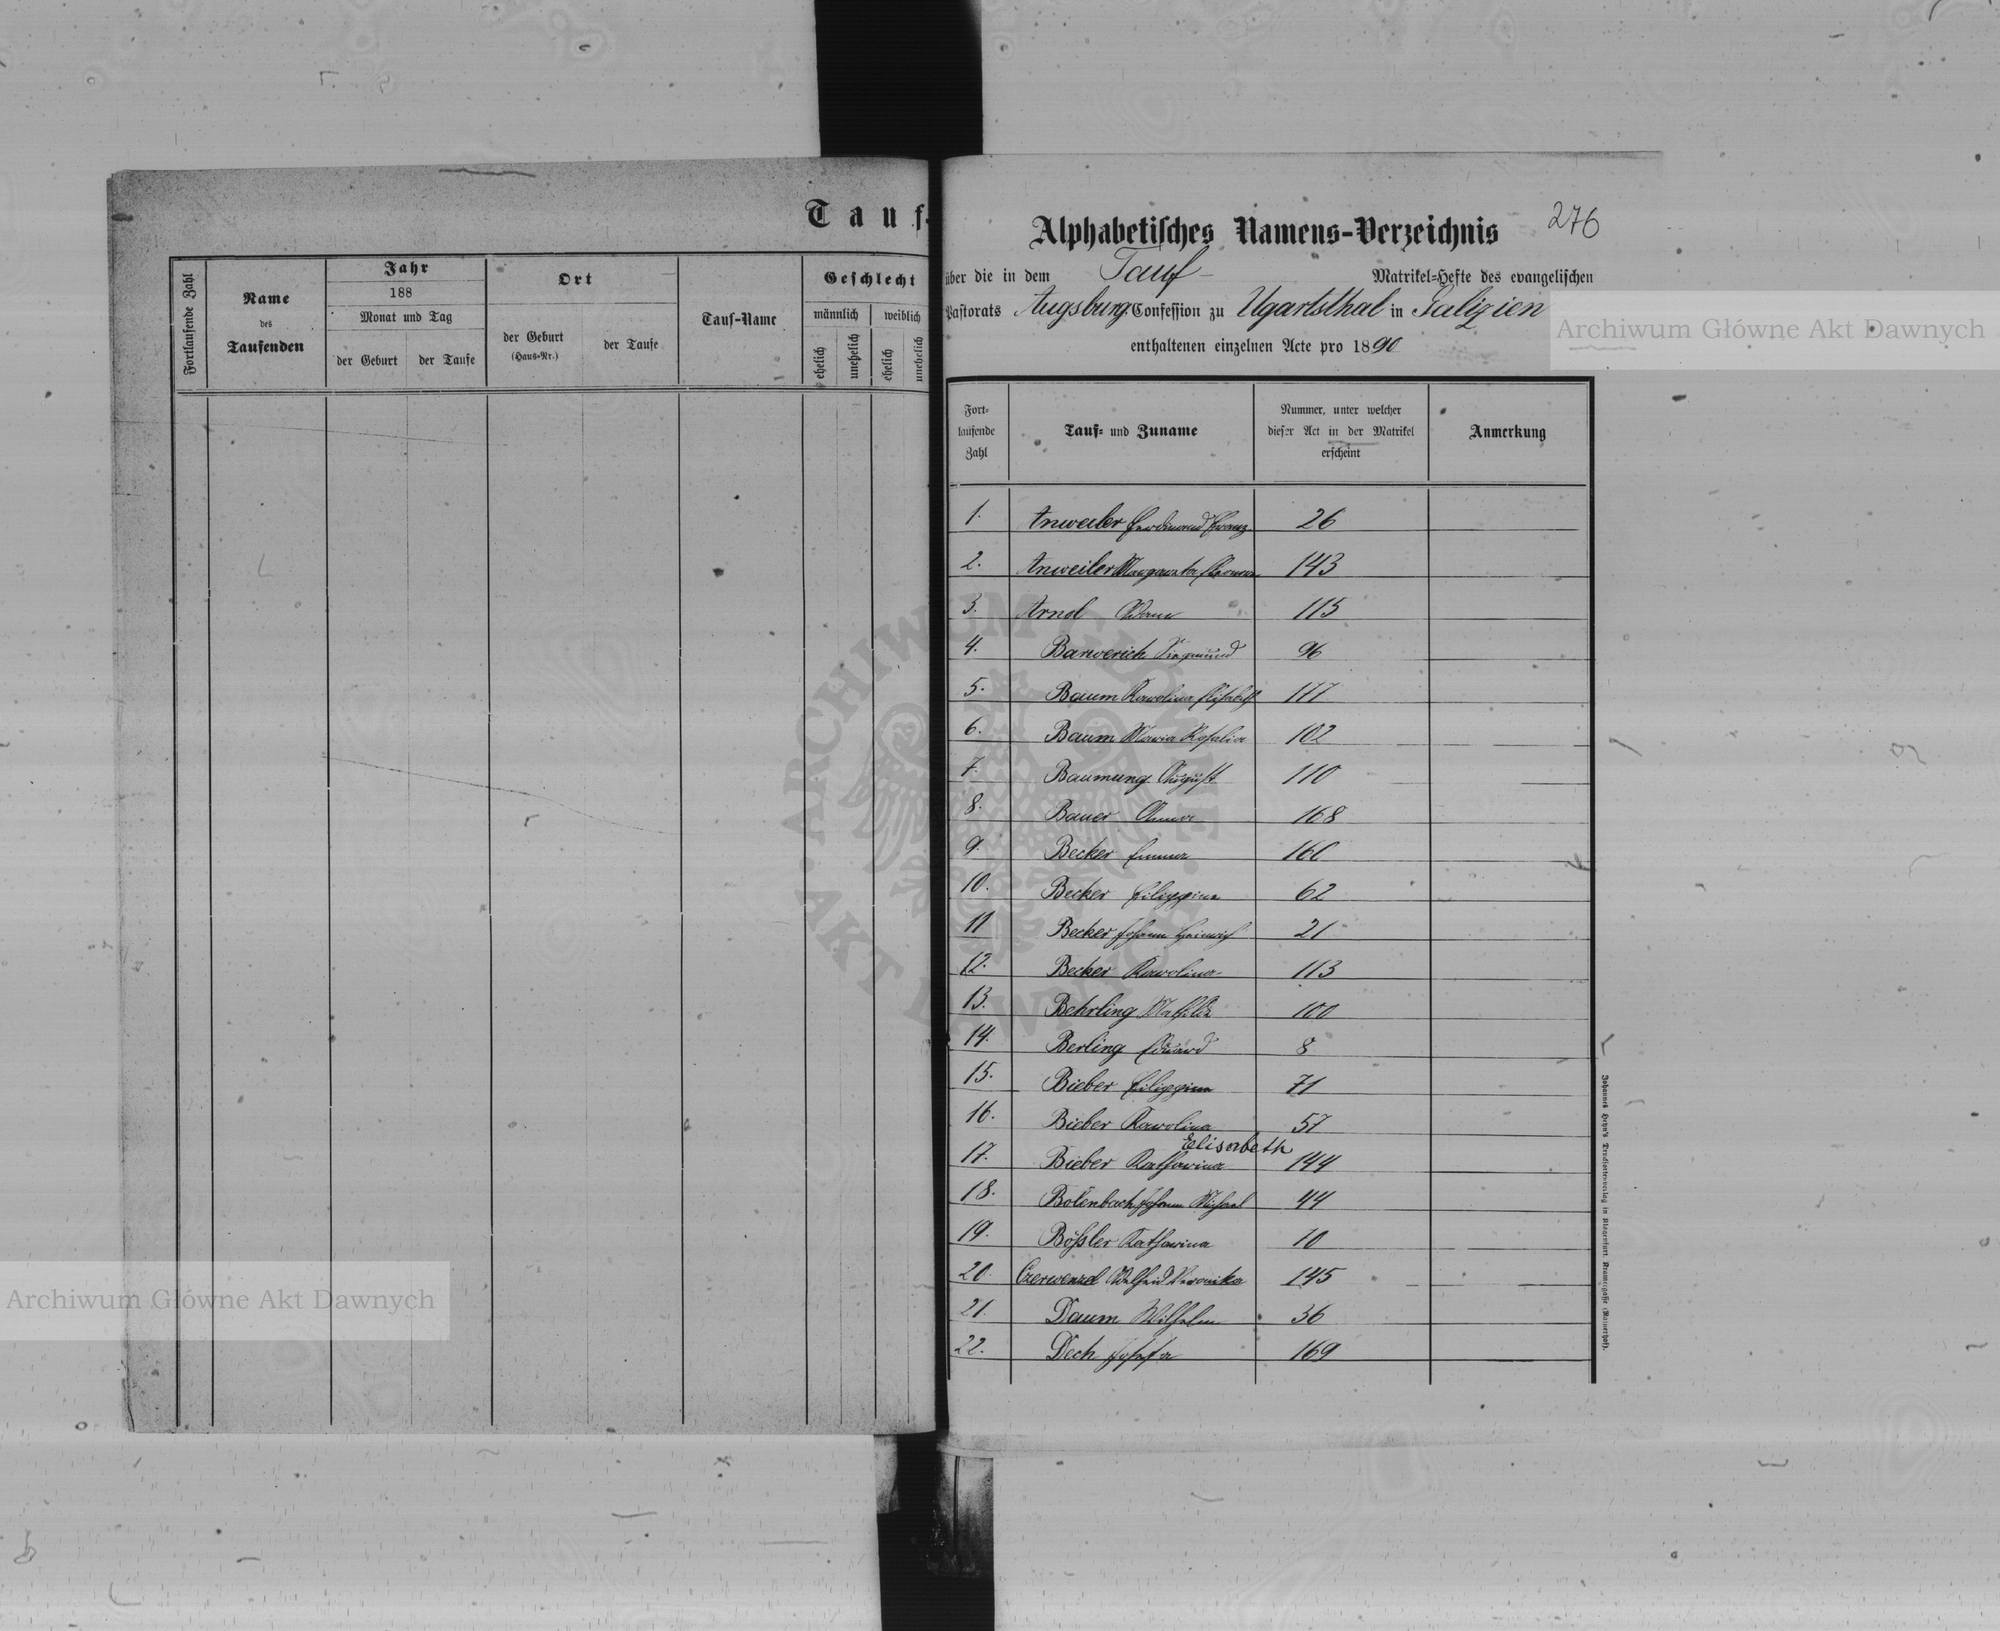 Tauf-
Fortlaufende Zahl
Name
des
Taufenden
Jahr
188
Monat und Tag
der Geburt
der Taufe
Ort
der Geburt
(Haus-Nr.)
der Taufe
Tauf-Name
Geschlecht
männlich
weiblich
ehelich
unehelich
ehelich
unehelich
Alphabetisches Namens-Verzeichnis
276
über die in dem Tauf- Matrikel-Hefte des evangelischen
Pastorats Augsburg. Confession zu Ugartsthal in Galizien
enthaltenen einzelnen Acte pro 1890
Fort-
laufende
Zahl
Tauf- und Zuname
Nummer, unter welcher
dieser Act in der Matrikel
erscheint
Anmerkung
1. Anweiler Ferdinand Franz 26
2. Anweiler Margareta 143
3. Arnol Adam 115
4. Barwerich Siegmund 96
5. Baum Karolina Elisabeth 177
6. Baum Maria Rosalia 102
7. Baumung August 110
8. Bauer Anna 168
9. Becker Emma
10. Becker Filippina 62
11 Becker Johann Heinrich 21
12. Becker Karolina 113
13. Behrling Mathilde 100
14. Berling Eduard 8
15. Bieber Filippina 71
16. Bieber Karolina 57
Elisabeth
17. Bieber Katharina 144
18. Bolenbach Johann Michael 44
19. Bößler Katharina 10
20. Czerwenzel Adelheid Veronika 145
21. Daum Wilhelm 36
22. Dech Josefa 169
Johannes Heyn's Drucksortenverlag in Klagenfurt, Kramergasse (Mauerhof).
Archiwum Główne Akt Dawnych
Archiwum Główne Akt Dawnych
ARCHIWUM GŁÓWNE AKT DAWNYCH